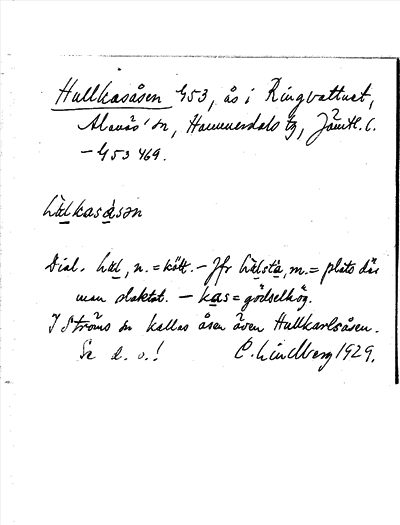 Hullkasåsen 453, ås i Ringvattnet,
Alanäs' sn, Hammerdals tg, Jämtl. l.
– 453 469.
hu̇lkasåsən
Dial. hu̇l, n. = kött. – Jfr hu̇lstå, m. = plats där
man slaktat. – kas = gödselhög.
I Ströms sn kallas åsen även Hullkarlsåsen.
Se d. o.! C. Lindberg 1929.